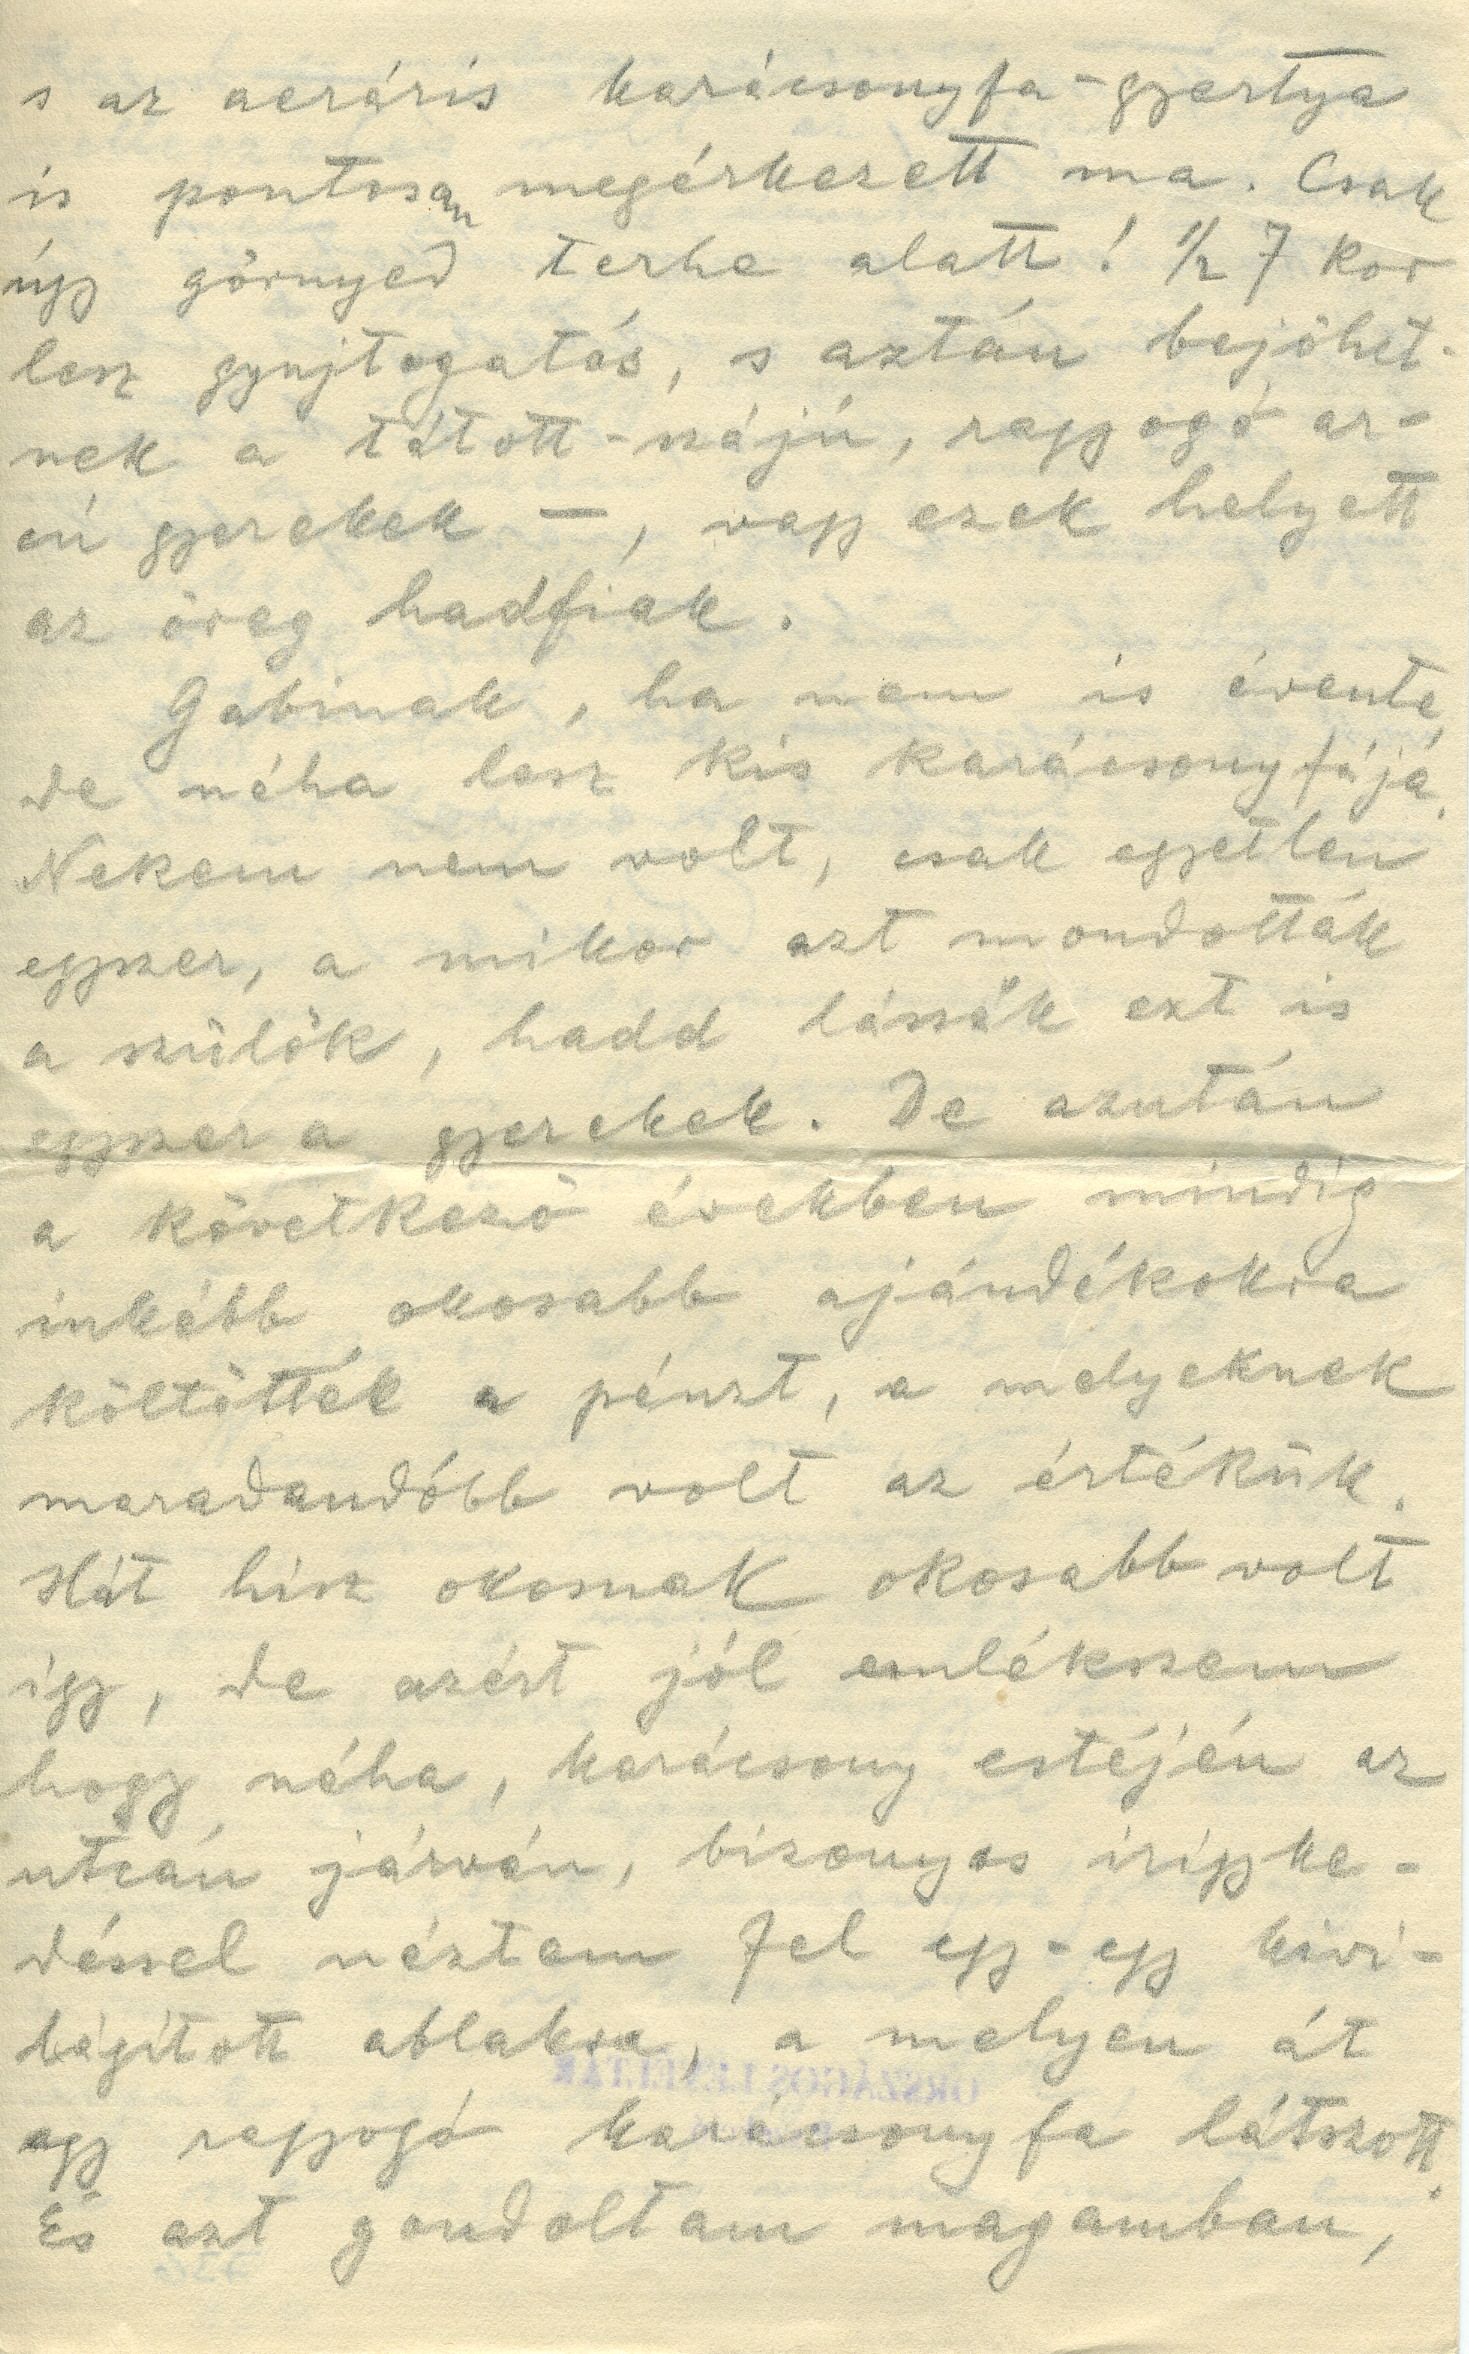 s az aeráris karácsonyfa-gyertya
is pontosan megérkezett ma. Csak
úgy görnyed terhe alatt! ½ 7 kor
lesz gyujtogatás, s aztán bejöhet-
nek a tátott-szájú, ragyogó ar-
cú gyerekek —, vagy ezek helyett
az öreg hadfiak.
Gabinak, ha nem is évente,
de néha lesz kis karácsonyfájá.
Nekem nem volt, csak egyetlen
egyszer, a mikor azt mondották
a szülők, hadd lássák ezt is
egyszer a gyerekek. De azután
a következő években mindig
inkább okosabb ajándékokra
költötték a pénzt, a melyeknek
maradandóbb volt az értékük.
Hát hisz okosnak okosabb volt
igy, de azért jól emlékszem
hogy néha, karácsony estéjén az
utcán járván, bizonyos irigyke-
déssel néztem fel egy-egy kivi-
lágított ablakra, a melyen át
egy ragyogó karácsonyfa látszott.
És azt gondoltam magamban,
ORSZÁGOS LEVÉLTÁR